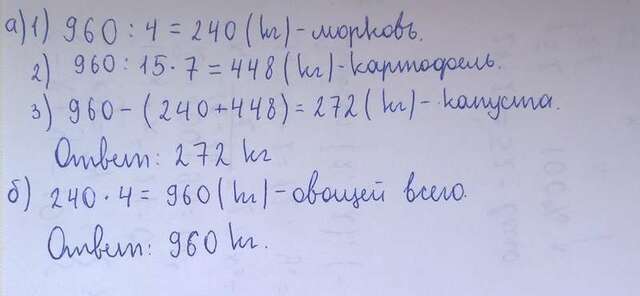 а) 1) 960 : 4 = 240 (кг) - морковь.
2) 960 : 15 · 7 = 448 (кг) - картофель.
3) 960 - (240 + 448) = 272 (кг) - капуста.
Ответ: 272 кг
б) 240 · 4 = 960 (кг) - овощей всего.
Ответ: 960 кг.